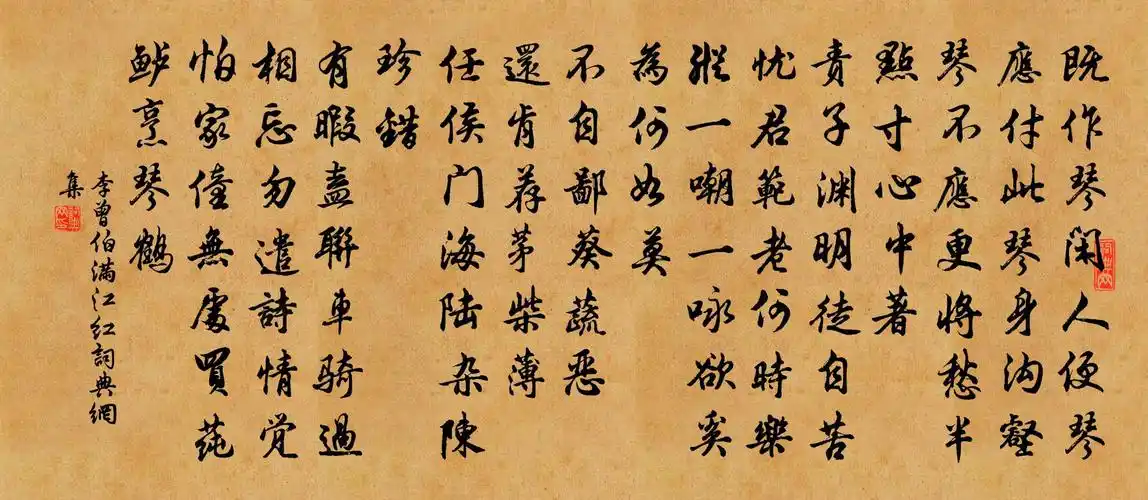 既作琴闲人便琴
應付此琴身沟壑
琴不應更将愁半
點寸心中著
责子渊明徒自苦
忧君範老何時樂
縱一嘲一咏欲奚
為何如莫
不自鄙葵蔬恶
還肯荐茅柴薄
任侯门海陆杂陳
珍錯
有暇盍聯車骑過
相忘勿遣詩情觉
怕家僮無處買莼
鲈烹琴鶴
李曾伯满江红詞典網
集